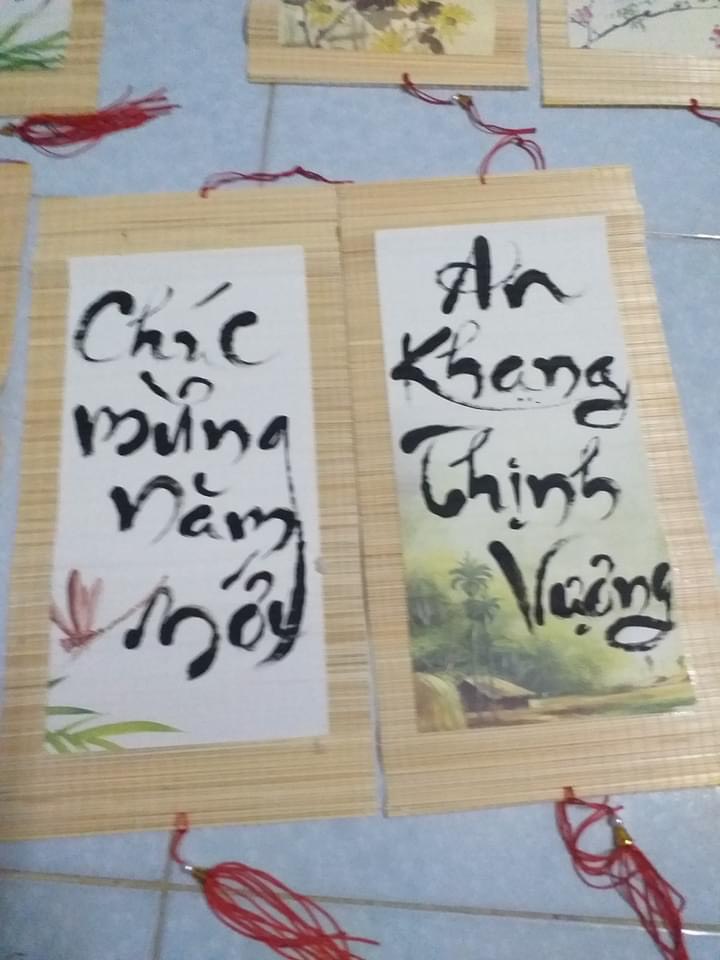 Chúc
mừng
năm
mới
An
Khang
Thịnh
Vượng